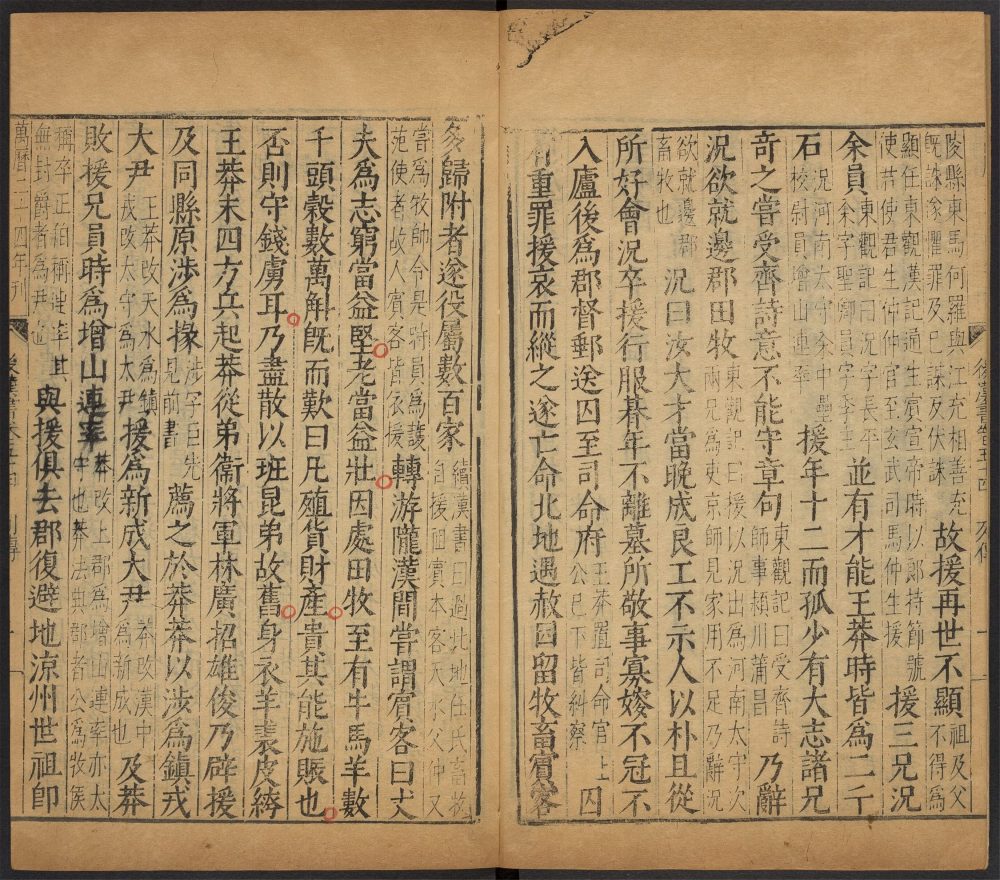 陵縣東馬何羅與江充相善充旣誅遂懼罪及已謀反伏誅故援再世不顯祖及父不得爲
顯任東觀漢記通生賓宣帝時以郎持節號使君使君生仲仲官至玄武司馬仲生援援三兄況
余員東觀記曰況字長平余字聖卿員字季主並有才能王莽時皆爲二千
石況河南太守余中壘校尉員增山連率援年十二而孤少有大志諸兄
奇之嘗受齊詩意不能守章句東觀記曰受齊詩師事潁川蒲昌乃辭
況欲就邊郡田牧東觀記曰援以況出爲河南太守次兩兄爲吏京師見家用不足乃辭況
欲就邊郡畜牧也況曰汝大才當晚成良工不示人以朴且從
所好會況卒援行服朞年不離墓所敬事寡嫂不冠不
入廬後爲郡督郵送囚至司命府王莽置司命官上公已下皆糾察囚
有重罪援哀而縱之遂亡命北地遇赦因留牧畜賓客
後漢書卷五十四
列傳
多歸附者遂役屬數百家續漢書曰過北地任氏畜牧自援祖賓本客天水父仲又
嘗爲牧帥令是時員爲護苑使者故人賓客皆依援轉游隴漢閒嘗謂賓客曰丈
夫爲志窮當益堅老當益壯因處田牧至有牛馬羊數
千頭穀數萬斛旣而歎曰凡殖貨財產貴其能施賑也
否則守錢虜耳乃盡散以班昆弟故舊身衣羊裘皮絝
王莽末四方兵起莽從弟衞將軍林廣招雄俊乃辟援
及同縣原涉爲掾涉字巨先見前書薦之於莽莽以涉爲鎮戎
大尹王莽改天水爲鎮戎改太守爲大尹援爲新成大尹莽改漢中爲新成也及莽
敗援兄員時爲增山連率莽改上郡爲增山連率亦太守也莽法典郡者公爲牧侯
稱卒正伯稱連率其無封爵者爲尹也與援俱去郡復避地涼州世祖卽
萬曆二十四年刊